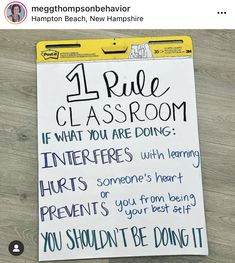 meggthompsonbehavior
Hampton Beach, New Hampshire
Post-it
1 Rule
CLASSROOM
IF WHAT YOU ARE DOING:
INTERFERES with learning
HURTS someone's heart
or
PREVENTS you from being
your best self
YOU SHOULDN'T BE DOING IT